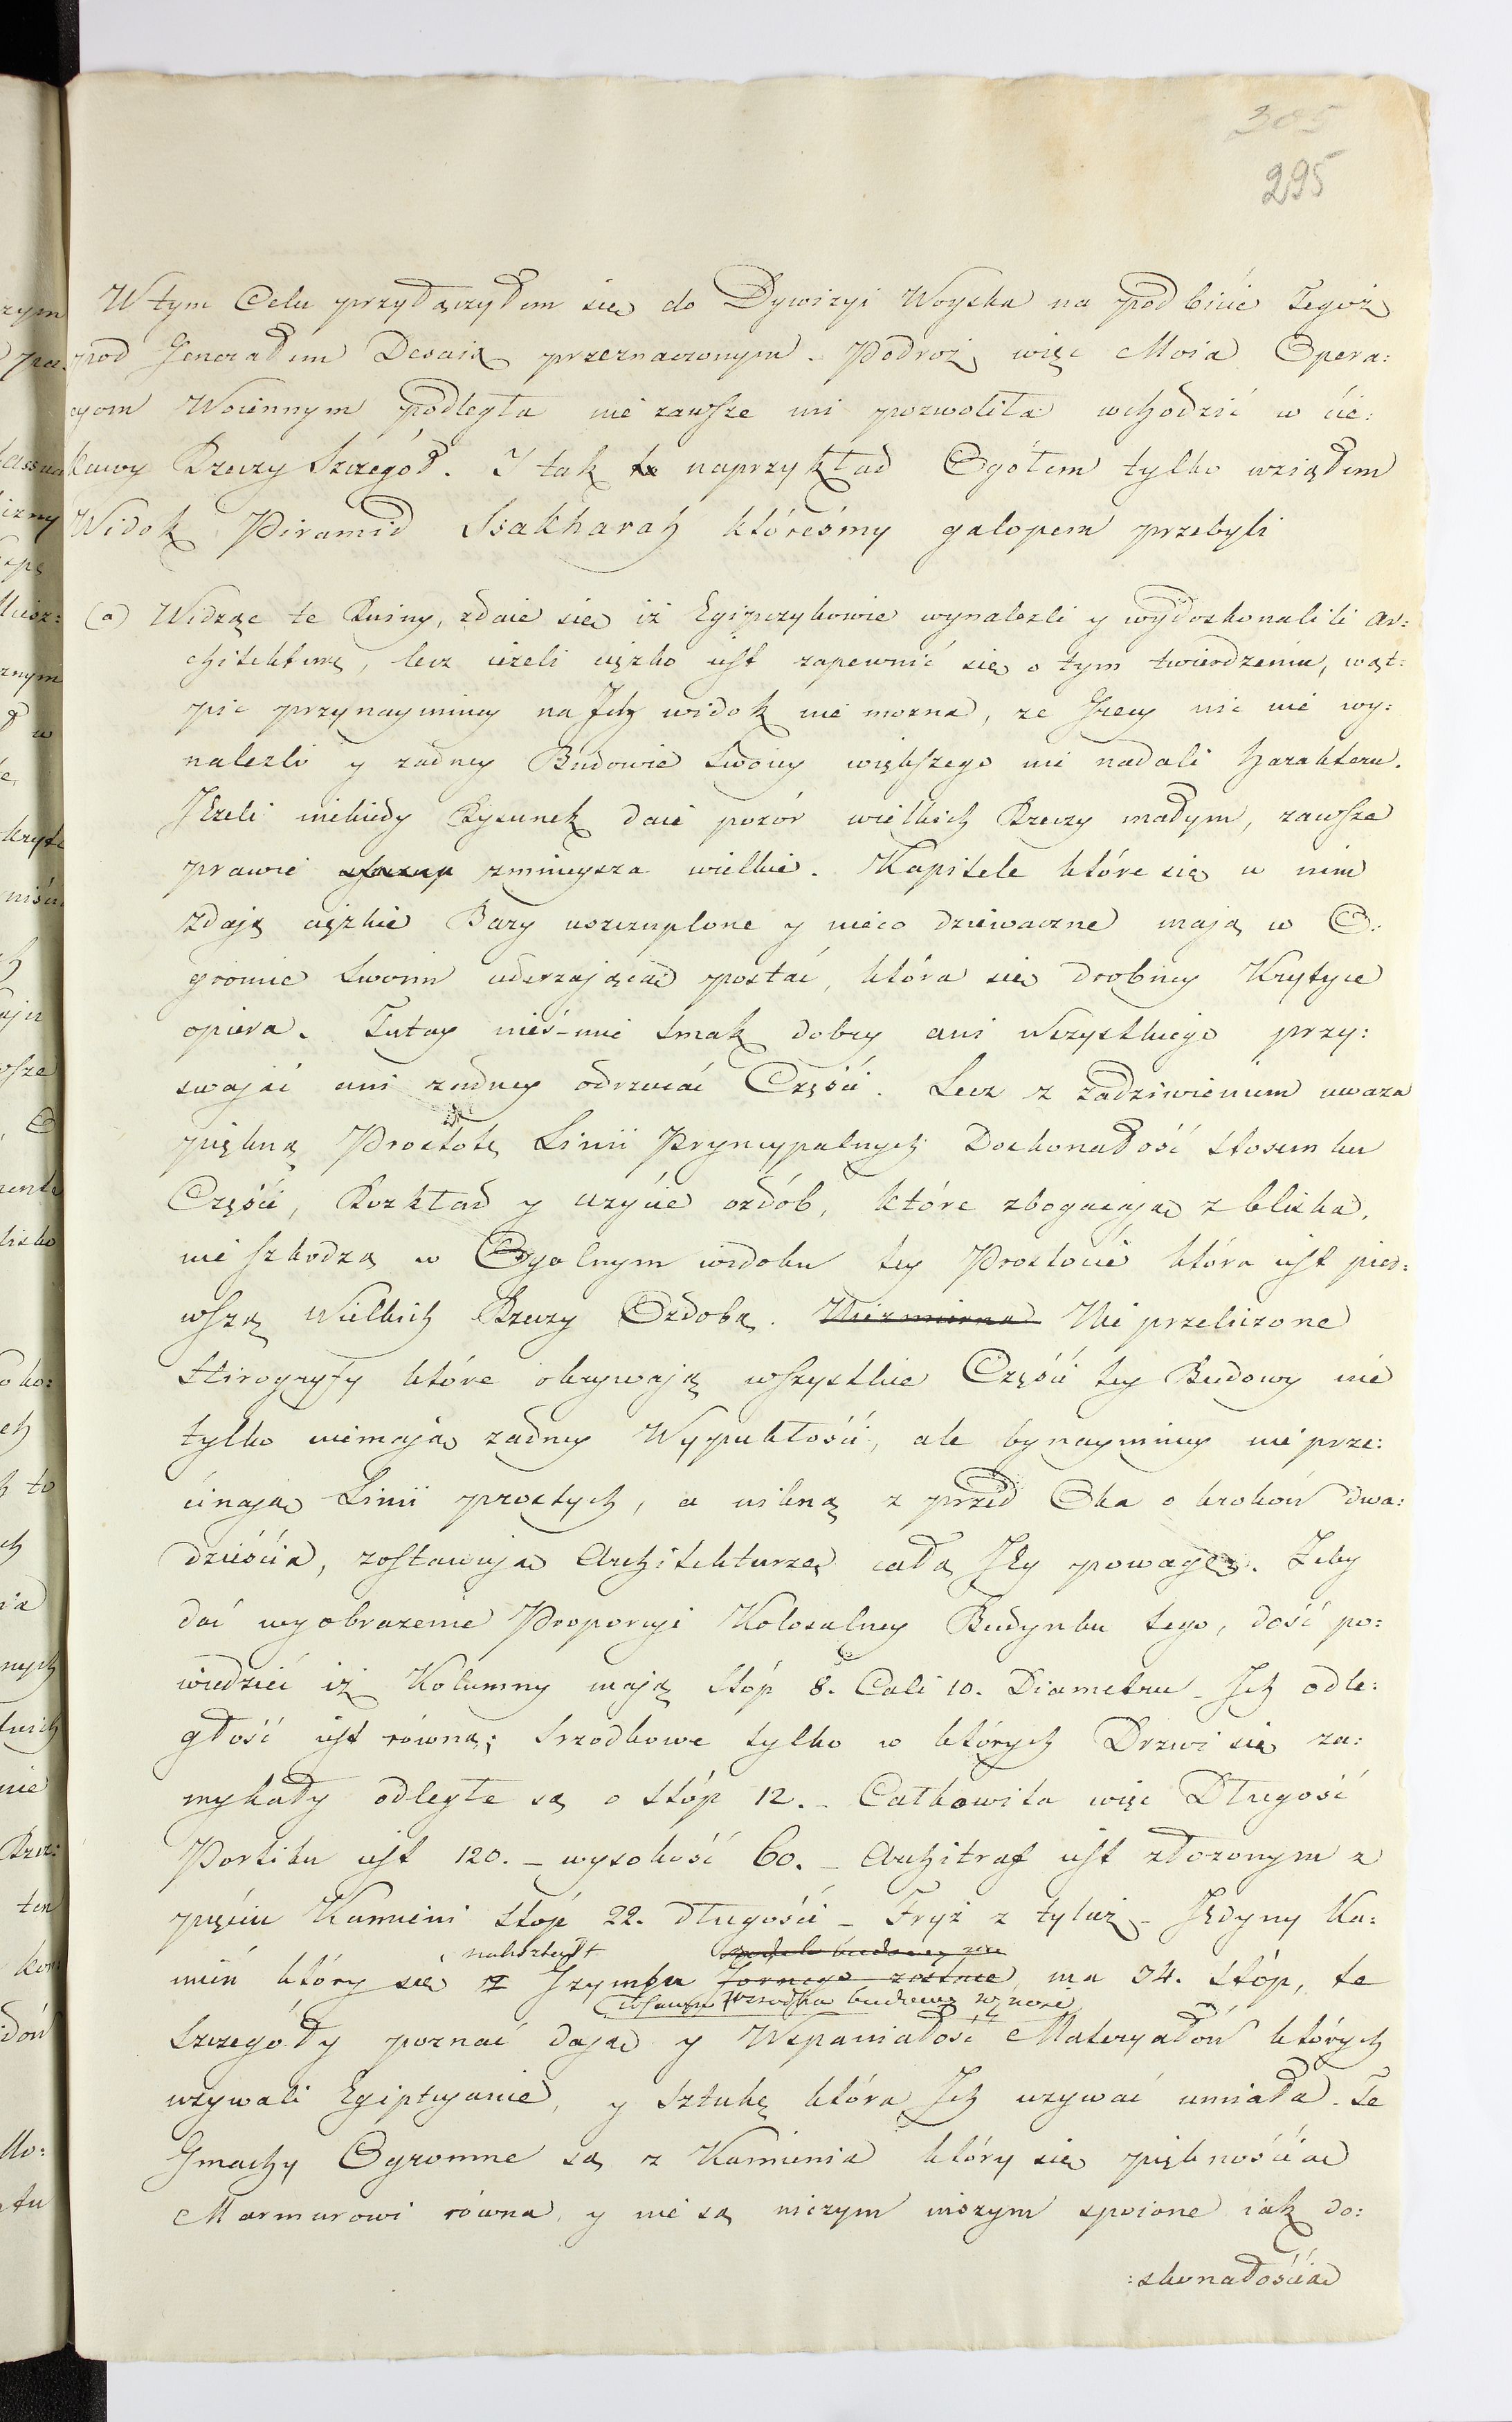 305
295
W tym Celu przyłączyłem się do Dywizyi Woyska na podbicie Tegoż
pod Generałem Desaix przeznaczonym. Podroż więc Moia Opera:
cyom Woiennym podległa nie zawsze mi pozwoliła wchodzić w cie:
kawy Rzeczy Szczegół. I tak naprzykład Ogółem tylko wziąłem
Widok Piramid Ssakharah któreśmy galopem przebyli
(a) Widząc te Ruiny, zdaie się iż Egipczykowie wynalezli y wydoskonalili Ar:
chitekturę, lecz ieżeli ciężko iest zapewnić się o tym twierdzeniu, wąt:
pic przynaymniey na Ich widok nie mozna, ze Grecy nic nie wy:
nalezli y zadney Budowie Swoiey większego nie nadali Harakteru.
Ieżeli niekiedy Rysunek daie pozór wielkich Rzeczy małym, zawsze
prawie zmnieysza wielkie. Kapitele które się w nim
zdają ciężkie Bazy uszczuplone y nieco dziewaczne mają w O:
gromie Swoim uderzającą postać, która się drobney Krytyce
opiera. Tutay nieś-mie Smak dobry ani Wszystkiego przy:
swajać ani zadney odrzucać Części. Lecz z Zadziwieniem uwaza
piękną Prostotę Linii Pryncypalnych Doskonałość Stosunku
Części, Rozkład y uzycie ozdób, które zbogacają z bliska,
nie szkodzą w Ogolnym widoku tey Prostocie która iest pier:
wszą Wielkich Rzeczy Ozdobą. Niezmierna Nieprzeliczone
Hirogryfy które okrywają wszystkie Części tey Budowy nie
tylko niemają zadney Wypukłości, ale bynaymniey nie prze:
cinają Linii prostych, a nikną z przed Oka o kroków dwa:
dzieścia, zostawują Architekturze całą Jey powagę. Żeby
dać wyobrazenie Proporcyi Kolosalney Budynku tego, dość po:
wiedzieć iż Kolumny mają Stóp 8. Cali 10. Diametru - Ich odle:
głość iest równa; Srzodkowe tylko w których Drzwi się za:
mykały odległe są o Stóp 12. - Całkowita więc Długość
Portiku iest 120. - wysokość 60. - Architraf iest złozonym z
pięciu Kamieni Stop 22. długości - Fryż z tyluż - Jedyny Ka:
nakształt
mień który się z Gzymsu ma 34. Stóp, te
wznosi
Szczegóły poznać dają y Wspaniałość Materyałów których
uzywali Egiptyanie, y Sztukę która Ich uzywać umiała. Te
Gmachy Ogromne są z Kamienia który się pięknością
Marmurowi równa, y nie są niczym inszym spoione iak do:
:skonałością